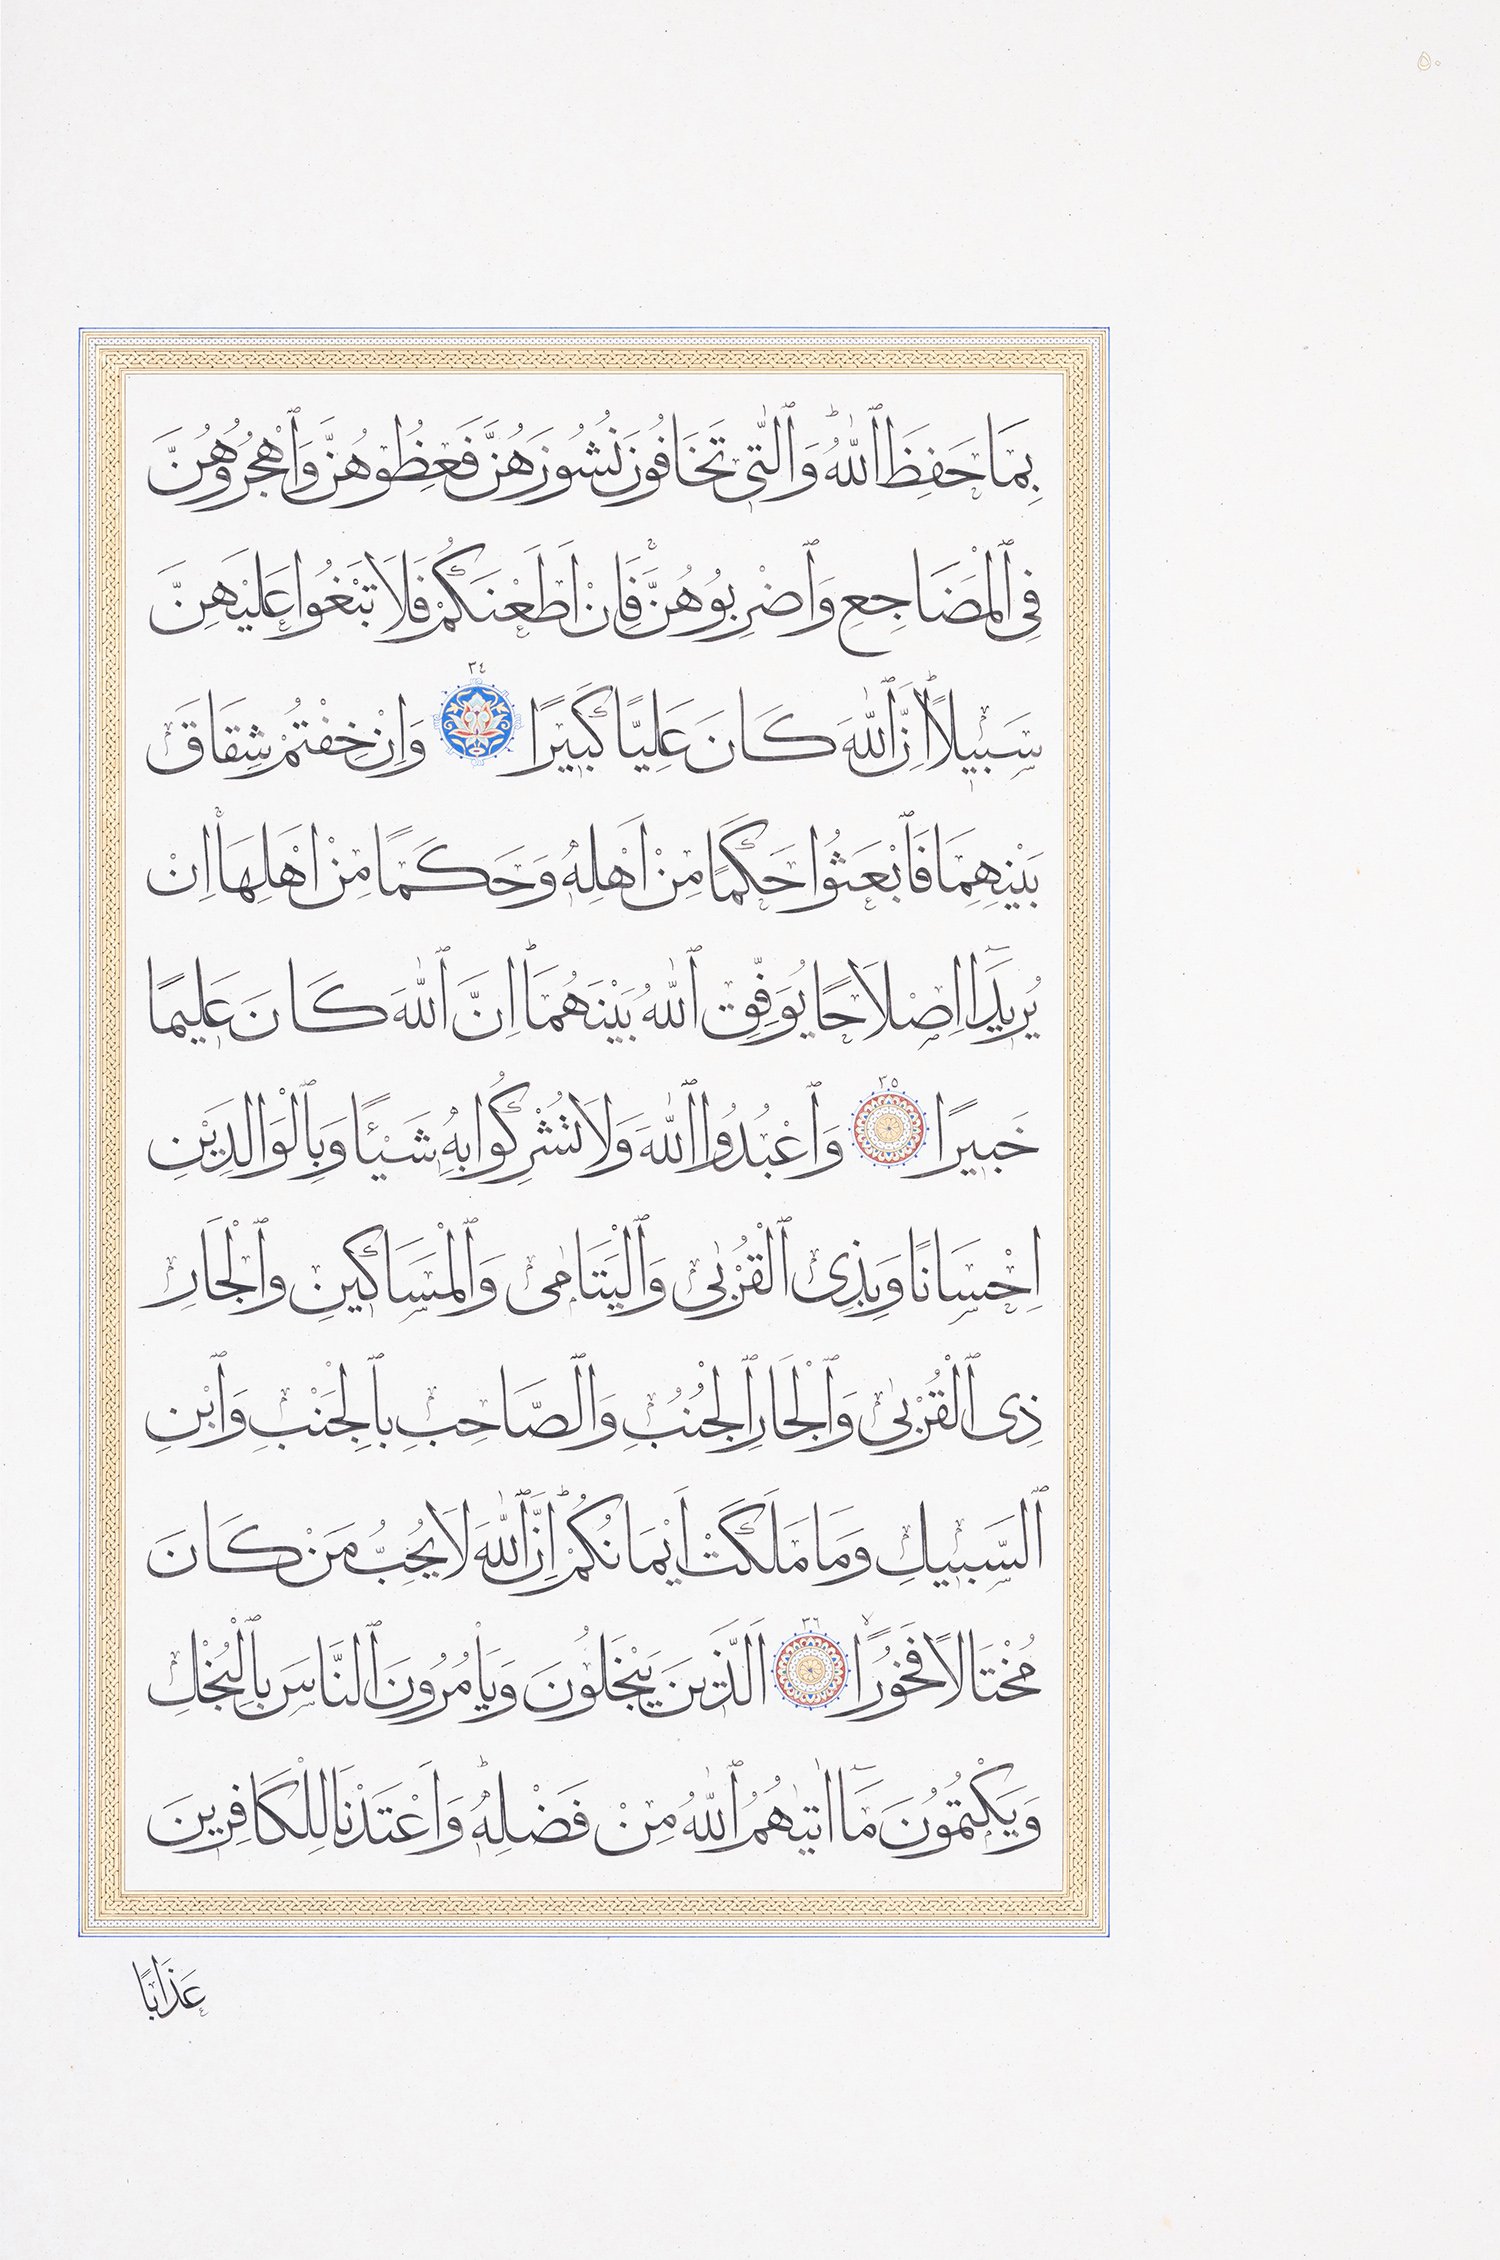 ٥٠
بِمَا حَفِظَ ٱللّٰهُ وَٱلّٰتٖى تَخَافُونَ نُشُوزَهُنَّ فَعِظُوهُنَّ وَٱهْجُرُوهُنَّ
فِى ٱلْمَضَاجِعِ وَٱضْرِبُوهُنَّۚ فَاِنْ اَطَعْنَكُمْ فَلَا تَبْغُوا عَلَيْهِنَّ
سَبٖيلًاۜ اِنَّ ٱللّٰهَ كَانَ عَلِيًّا كَبٖيرًا ٣٤ وَاِنْ خِفْتُمْ شِقَاقَ
بَيْنِهِمَا فَٱبْعَثُوا حَكَمًا مِنْ اَهْلِهٖ وَحَكَمًا مِنْ اَهْلِهَاۚ اِنْ
يُرٖيدَٓا اِصْلَاحًا يُوَفِّقِ ٱللّٰهُ بَيْنَهُمَاۜ اِنَّ ٱللّٰهَ كَانَ عَلٖيمًا
خَبٖيرًا ٣٥ وَٱعْبُدُوا ٱللّٰهَ وَلَا تُشْرِكُوا بِهٖ شَيْـًٔا وَبِٱلْوَالِدَيْنِ
اِحْسَانًا وَبِذِى ٱلْقُرْبٰى وَٱلْيَتَامٰى وَٱلْمَسَاكٖينِ وَٱلْجَارِ
ذِى ٱلْقُرْبٰى وَٱلْجَارِ ٱلْجُنُبِ وَٱلصَّاحِبِ بِٱلْجَنْبِ وَٱبْنِ
ٱلسَّبٖيلِ وَمَا مَلَكَتْ اَيْمَانُكُمْۜ اِنَّ ٱللّٰهَ لَا يُحِبُّ مَنْ كَانَ
مُخْتَالًا فَخُورًاۙ ٣٦ اَلَّذٖينَ يَبْخَلُونَ وَيَاْمُرُونَ ٱلنَّاسَ بِٱلْبُخْلِ
وَيَكْتُمُونَ مَٓا اٰتٰيهُمُ ٱللّٰهُ مِنْ فَضْلِهٖۜ وَاَعْتَدْنَا لِلْكَافِرٖينَ
عَذَابًا